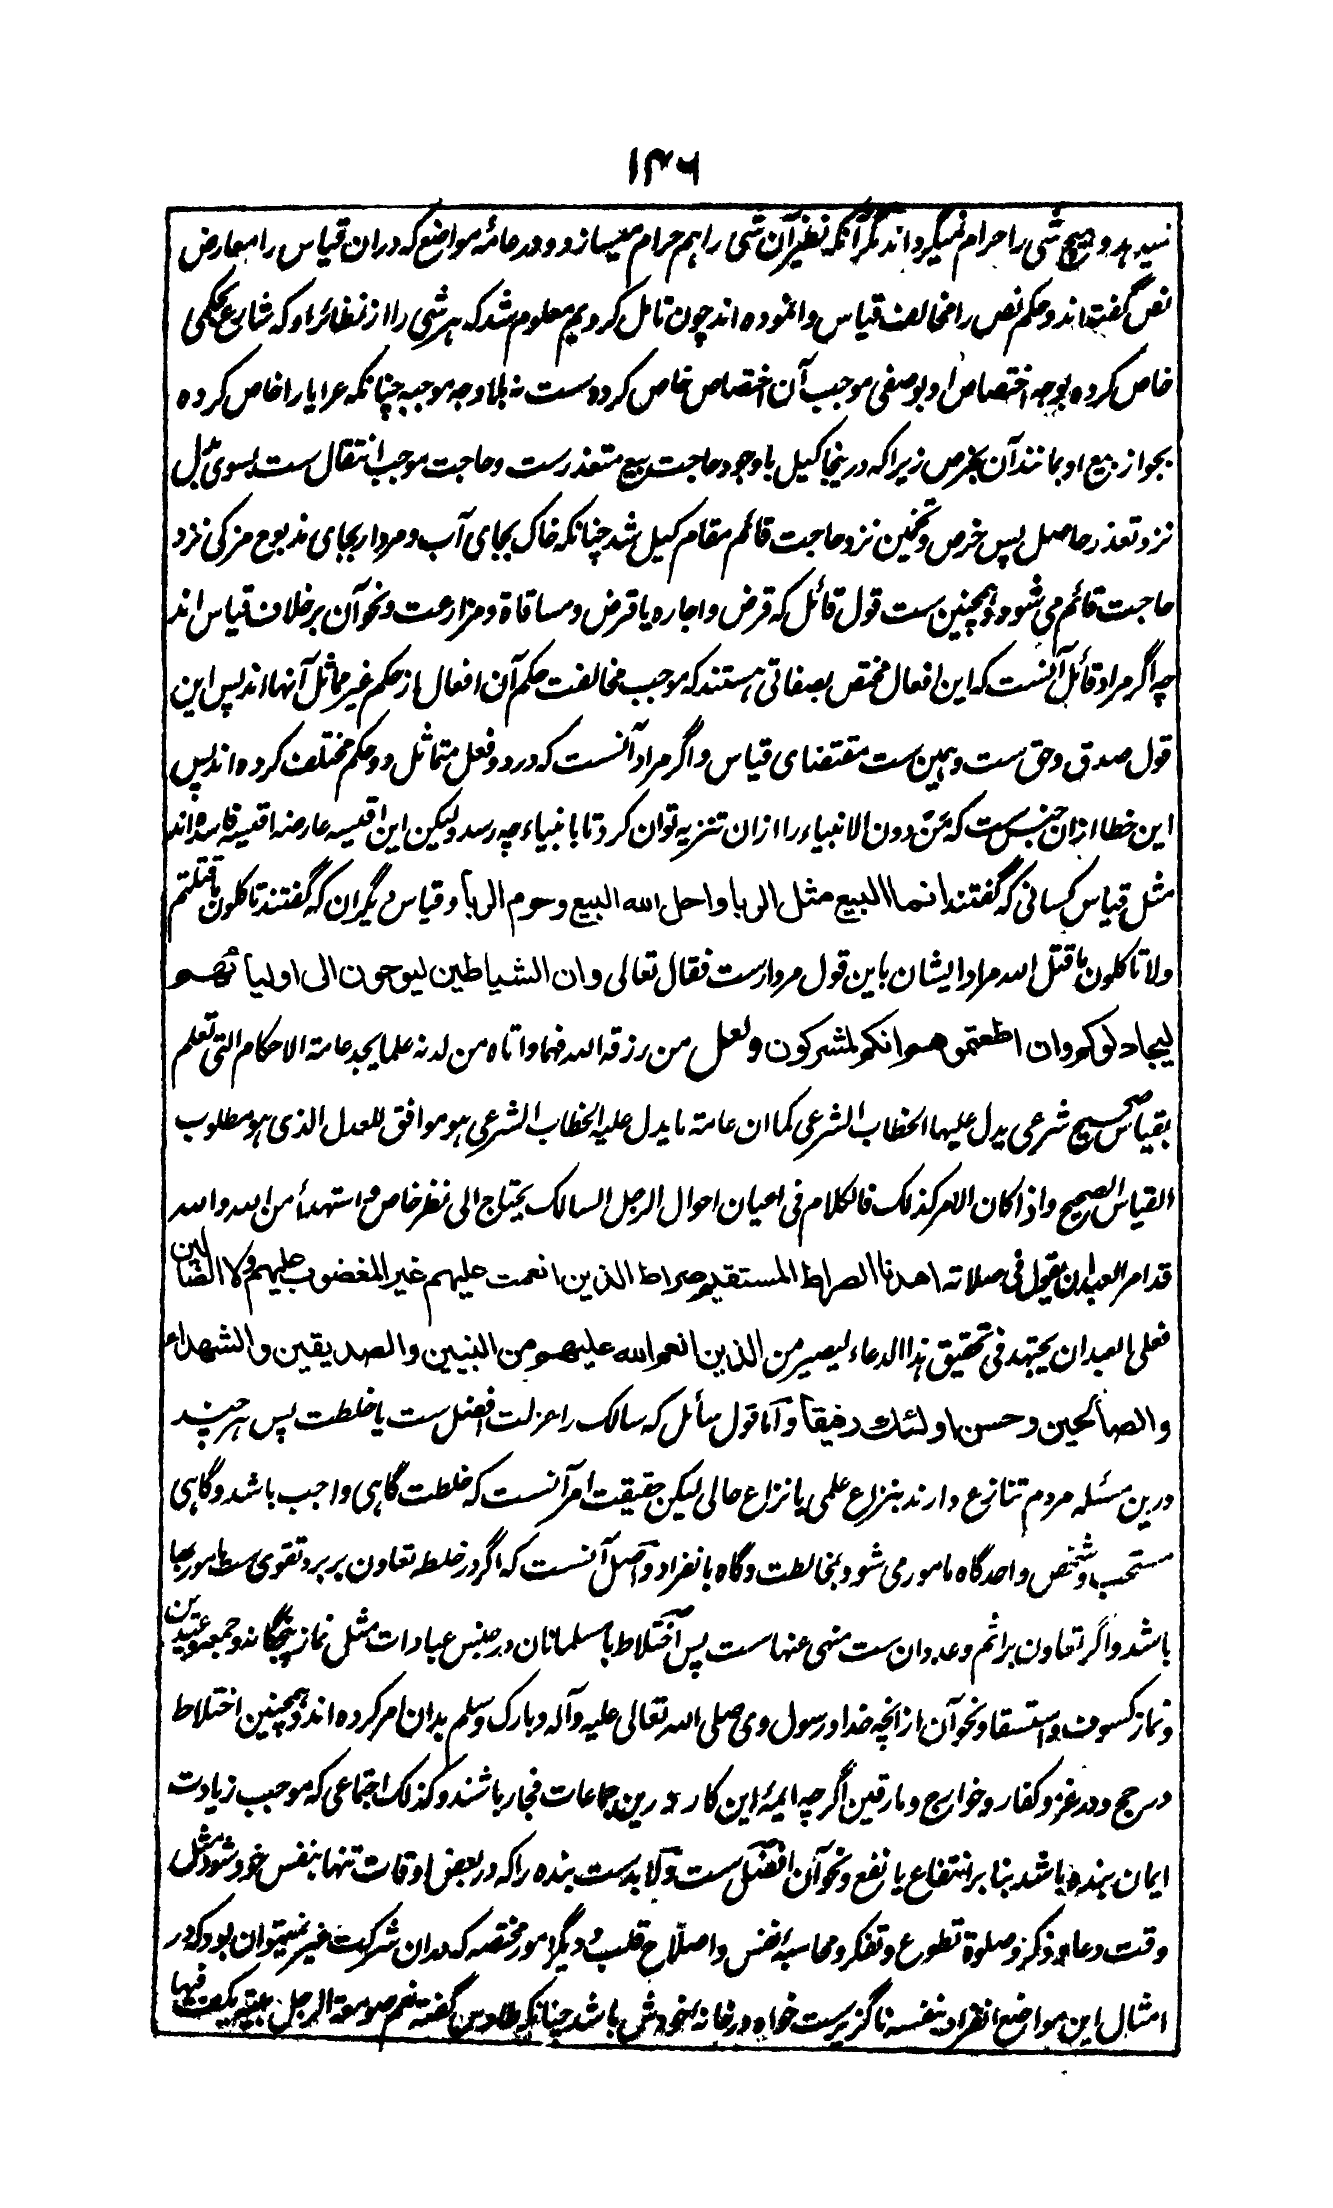 ۱۴۶
نمیدهد و هیچ شی را حرام نمیگرداند مگر آنکه نظیر آن شی را هم حرام میسازد و در عامهٔ مواضع که دران قیاس را معارض
نص گفته‌اند و حکم نص را مخالف قیاس وانموده اند چون تامل کردیم معلوم شد که هر شی را از نظائر او که شارع بحکمی
خاص کرده بوجه اختصاص او بوصفی موجب آن اختصاص خاص کرده ست نه بلا وجه موجبه چنانکه عرایا را خاص کرده
بجواز بیع او بمانند آن بخرص زیرا که درینجا کیل با وجود حاجت بیع متعذر ست و حاجت موجب انتقال ست بسوی بدل
نزد تعذر حاصل پس خرص و تخمین نزد حاجت قائم مقام کیل شد چنانکه خاک بجای آب و مردار بجای مذبوح مزکی نزد
حاجت قائم می شود و همچنین ست قول قائل که قرض و اجاره یا قرض و مساقاة و مزارعت و نحو آن بر خلاف قیاس اند
چه اگر مراد قائل آنست که این افعال مختص بصفاتی هستند که موجب مخالفت حکم آن افعال از حکم غیر مماثل آنها اند پس این
قول صدق و حق ست و همین ست مقتضای قیاس و اگر مراد آنست که در دو فعل متماثل دو حکم مختلف کرده اند پس
این خطا ازان جنس ست که مَن دون الانبیاء را ازان تنزیه توان کرد تا با نبیاء چه رسد ولیکن این اقیسه عارضه اقیسه فاسده اند
مثل قیاس کسانی که گفتند انما البیع مثل الربا واحل الله البیع وحرم الربا و قیاس دیگران که گفتند تاکلون ما قتلتم
ولا تاکلون ما قتل الله مراد ایشان باین قول مردار ست فقال تعالی وان الشیاطین لیوحون الی اولیائهم
لیجادلوکم وان اطعتموهم انکم لمشرکون ولعل من رزقه الله فهما واتاه من لدنه علما یجد عامة الاحکام التی تعلم
بقیاس صحیح شرعی یدل علیها الخطاب الشرعی کما ان عامة ما یدل علیه الخطاب الشرعی هو موافق للعدل الذی هو مطلوب
القیاس الصحیح واذا کان الامر کذلک فالکلام فی اعیان احوال الرجل السالک یحتاج الی نظر خاص و استهداء من الله والله
قد امر العبد ان یقول فی صلاته اهدنا الصراط المستقیم صراط الذین انعمت علیهم غیر المغضوب علیهم ولا الضالین
فعلی العبد ان یجتهد فی تحقیق هذا الدعاء لیصیر من الذین انعم الله علیهم من النبیین والصدیقین والشهداء
والصالحین وحسن اولئک رفیقا و اما قول سائل که سالک را عزلت افضل ست یا خلطت پس هر چند
درین مسئله مردم تنازع دارند بنزاع علمی یا نزاع حالی لیکن حقیقت امر آنست که خلطت گاهی واجب باشد و گاهی
مستحب و شخص واحد گاه مامور می شود بمخالطت و گاه بانفراد و اصل آنست که اگر در خلطه تعاون بر بر و تقوی ست مامور بها
باشد و اگر تعاون بر اثم و عدوان ست منهی عنها ست پس اختلاط با مسلمانان در جنس عبادات مثل نماز پنجگانه و جمعه و عیدین
و نماز کسوف و استسقا و نحو آن از انچه خدا و رسول وی صلی الله تعالی علیه وآله وبارک وسلم بدان امر کرده اند و همچنین اختلاط
در حج و در غزو کفار و خوارج و مارقین اگر چه ایمهٔ این کار و درین جماعات فجار باشند و کذلک اجتماعی که موجب زیادت
ایمان بنده باشد بنا بر انتفاع یا نفع و نحو آن افضل ست و لا بد ست بنده را که در بعض اوقات تنها بنفس خود شود مثل
وقت دعا و ذکر و صلوة تطوع و تفکر و محاسبه نفس و اصلاح قلب و دیگر امور مختصه که دران شرکت غیر نمیتوان بود که در
امثال این مواضع انفراد بنفسه ناگزیر ست خواه در خانه خودش باشد چنانکه طاوس گفته نعم صومعة الرجل بیته یکف فیها